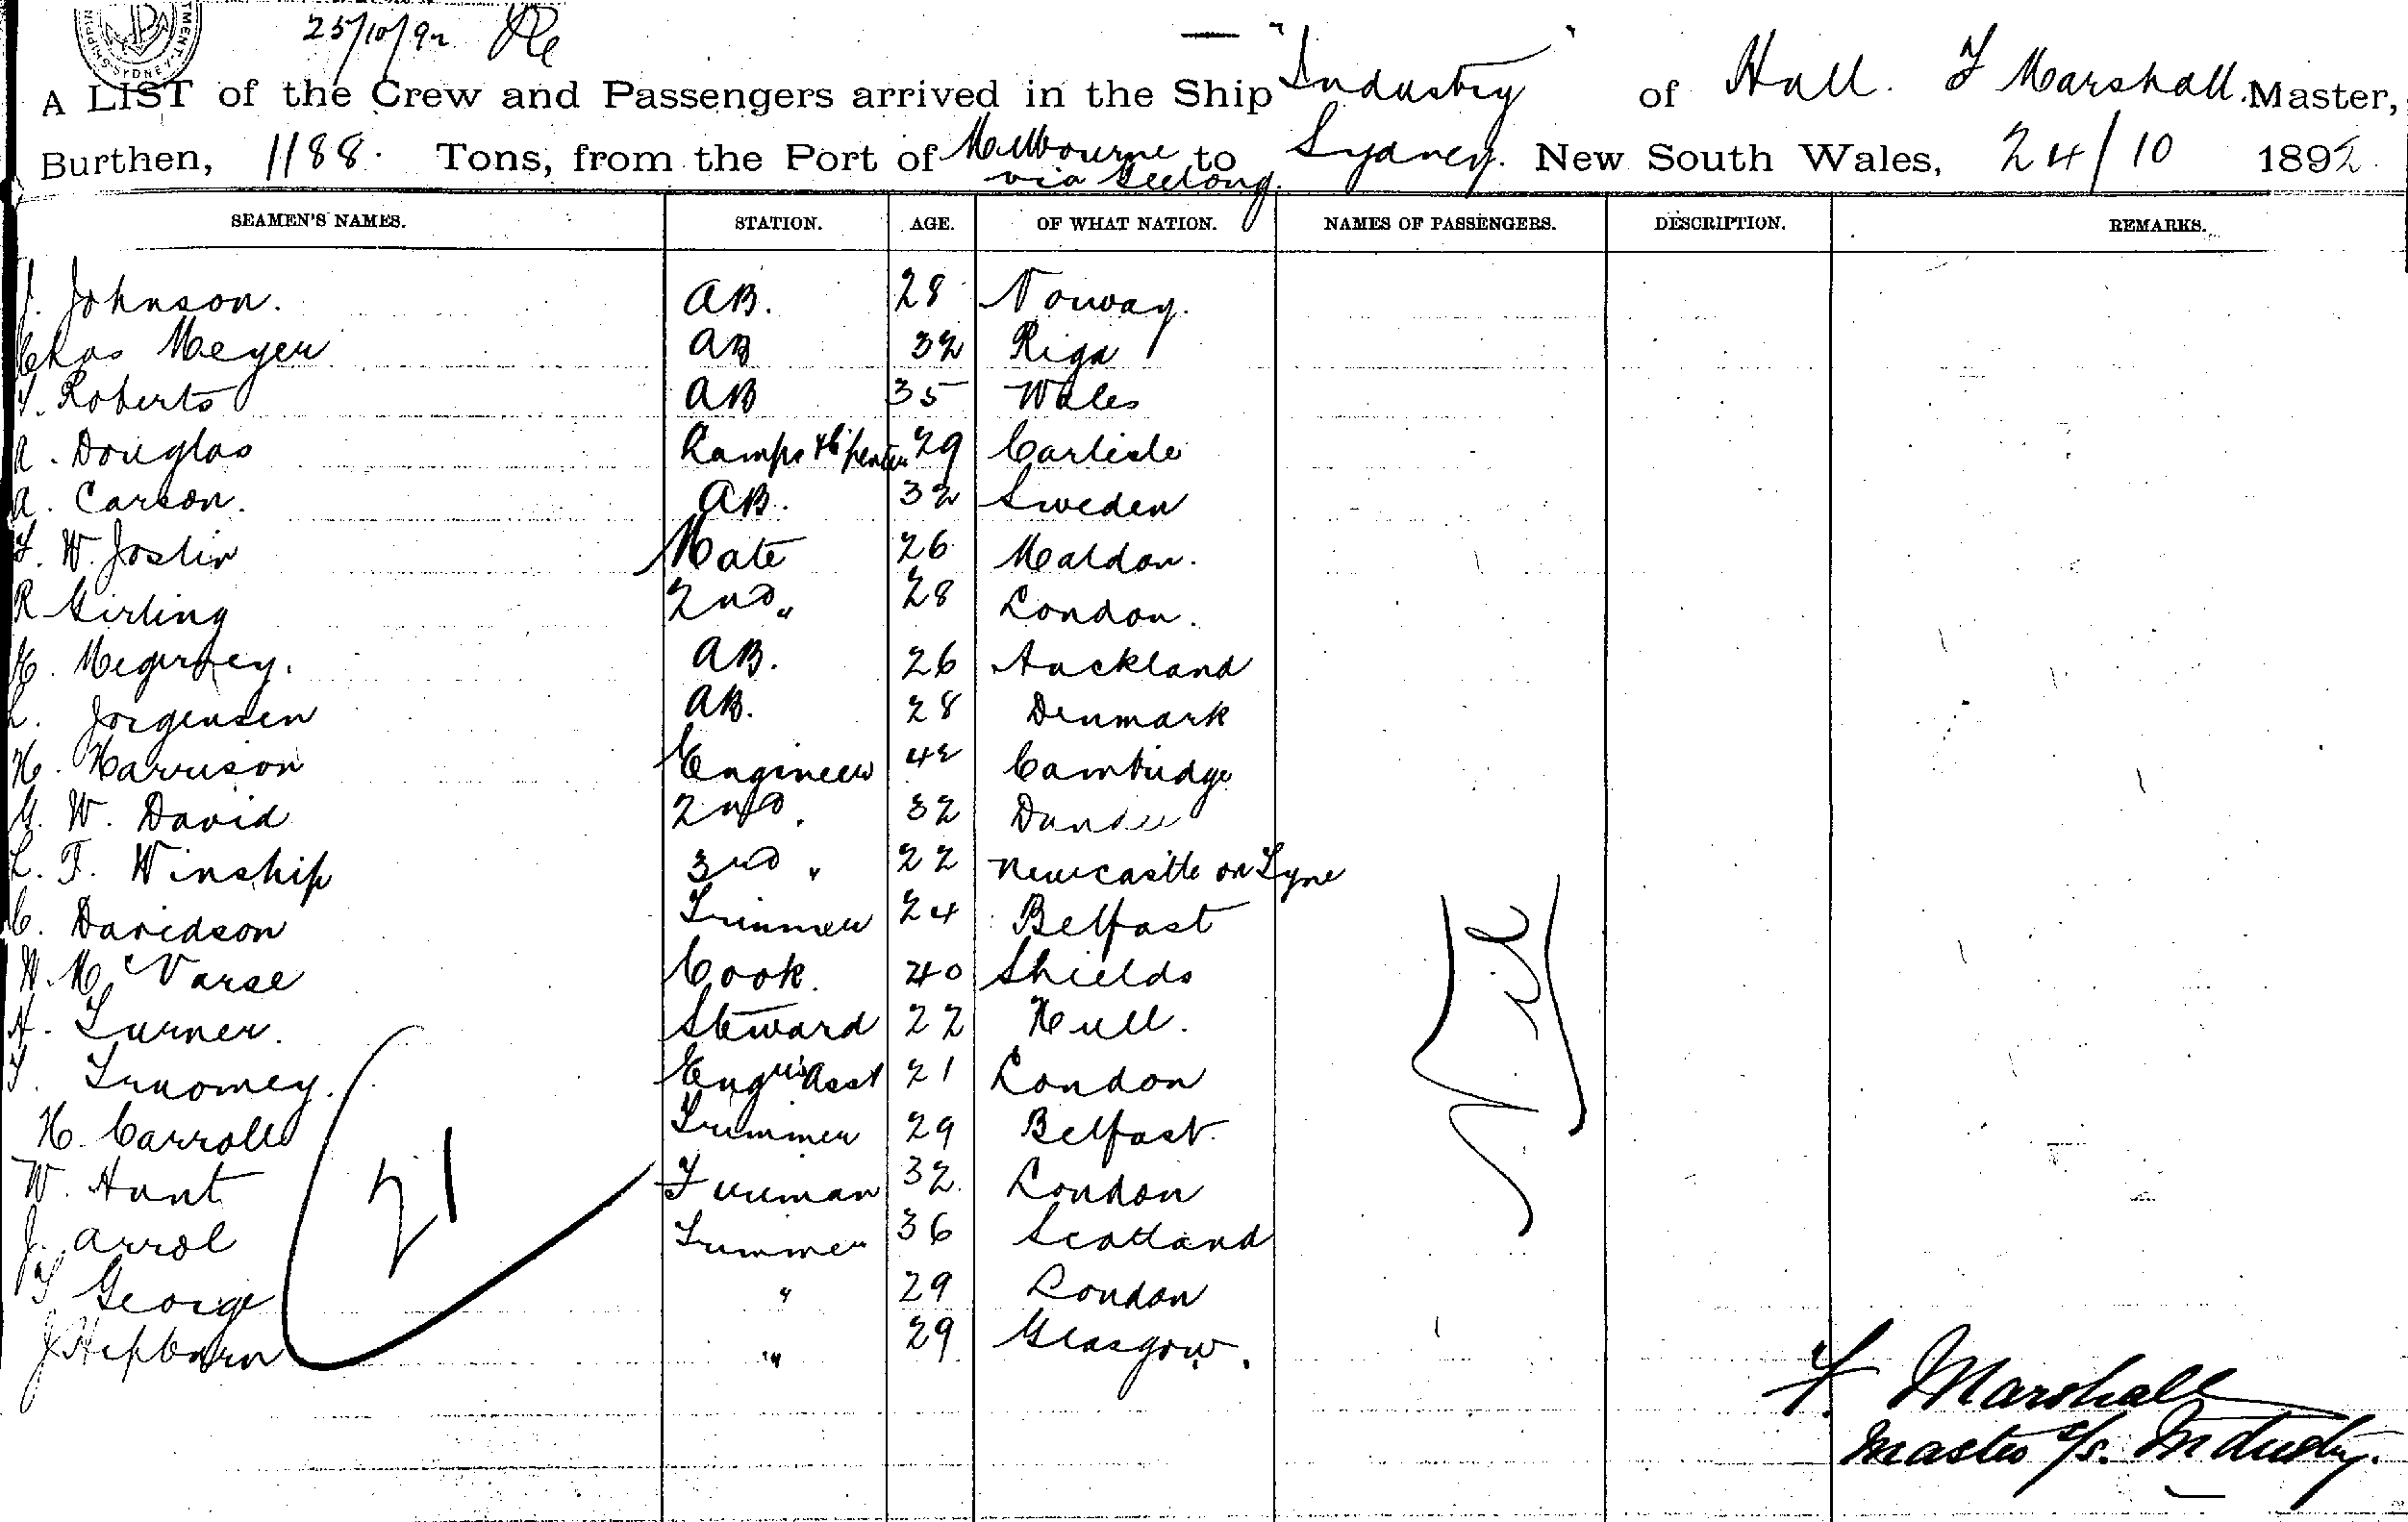 25/10/92
A LIST of the Crew and Passengers arrived in the Ship "Industry" of Hull. F Marshall. Master,
Burthen, 1188. Tons, from the Port of Melbourne via Geelong. to Sydney. New South Wales, 24/10 1892.
SEAMEN'S NAMES. STATION. AGE. OF WHAT NATION. NAMES OF PASSENGERS. DESCRIPTION. REMARKS.
J. Johnson. AB. 28 Norway.
Chas Meyer AB 32 Riga
T. Roberts AB 35 Wales
A. Douglas Lamps & C'penter 29 Carlisle
A. Carson. AB. 32 Sweden
F. W. Joslin Mate 26 Maldon.
R Girling 2nd " 28 London.
H. AB. 26 Auckland
L. Jorgensen AB. 28 Denmark
H. Harrison Engineer 42 Cambridge
G. W. David 2nd. 32 Dundee
L. F. Winship 3rd " 22 Newcastle on Tyne
C. Davidson Trimmer 24 Belfast
W. Mc Cook. 40 Shields
A. Turner. Steward 22 Hull.
T. Engrs Asst 21 London
H. Carroll Trimmer 29 Belfast.
W. Hunt Fireman 32. London
J. Arrol Trimmer 36 Scotland
T George " 29 London
J. Hepburn " 29 Glasgow.
21
Nil
F. Marshall
Master s/s. Industry.